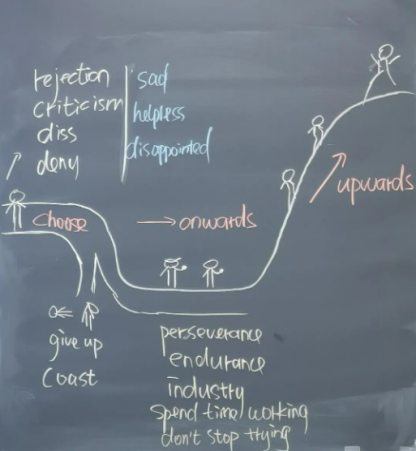 rejection
criticism
diss
deny
sad
helpless
disappointed
choose
onwards
upwards
give up
Coast
perseverance
endurance
industry
spend time/working
don't stop trying